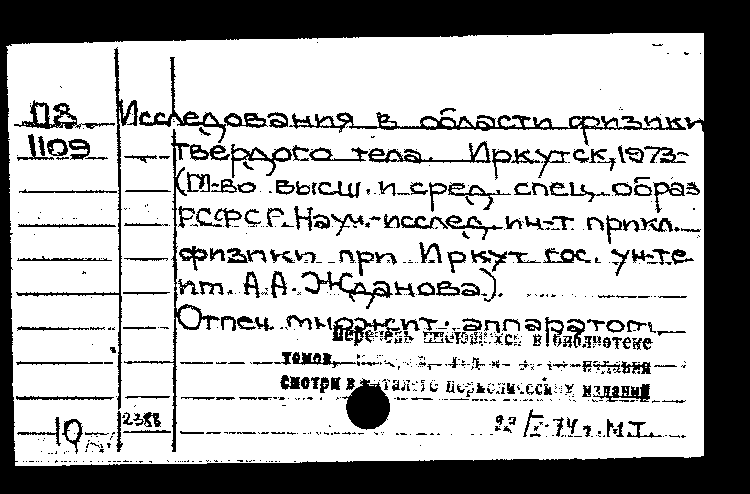 П8 Исследования в области физики
1109 твердого тела. Иркутск, 1973-
(М-во высш. и сред. спец. образ
РСФСР. Науч.-исслед. ин-т прикл.
физики при Иркут. гос. ун-те
им. А.А. Жданова).
Отпеч. множит. аппаратом.
Перечень имеющихся в библиотеке
томов, издания
смотри в каталоге периодических изданий
10 2388 74 г. М.Т.